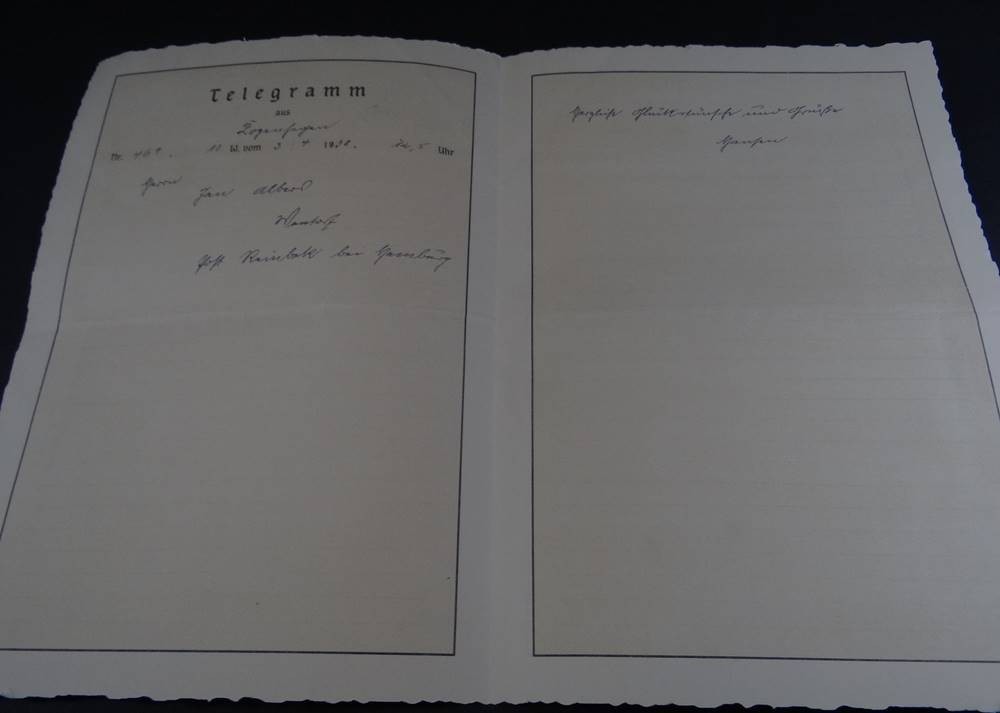 Telegramm
aus
Nr. 169. 10 W. vom 3 4 1930. Uhr
Herrn Jan Albers
Wentorf
Post Reinbek bei Hamburg
Herzliche Glückwünsche und Grüsse
Hansen